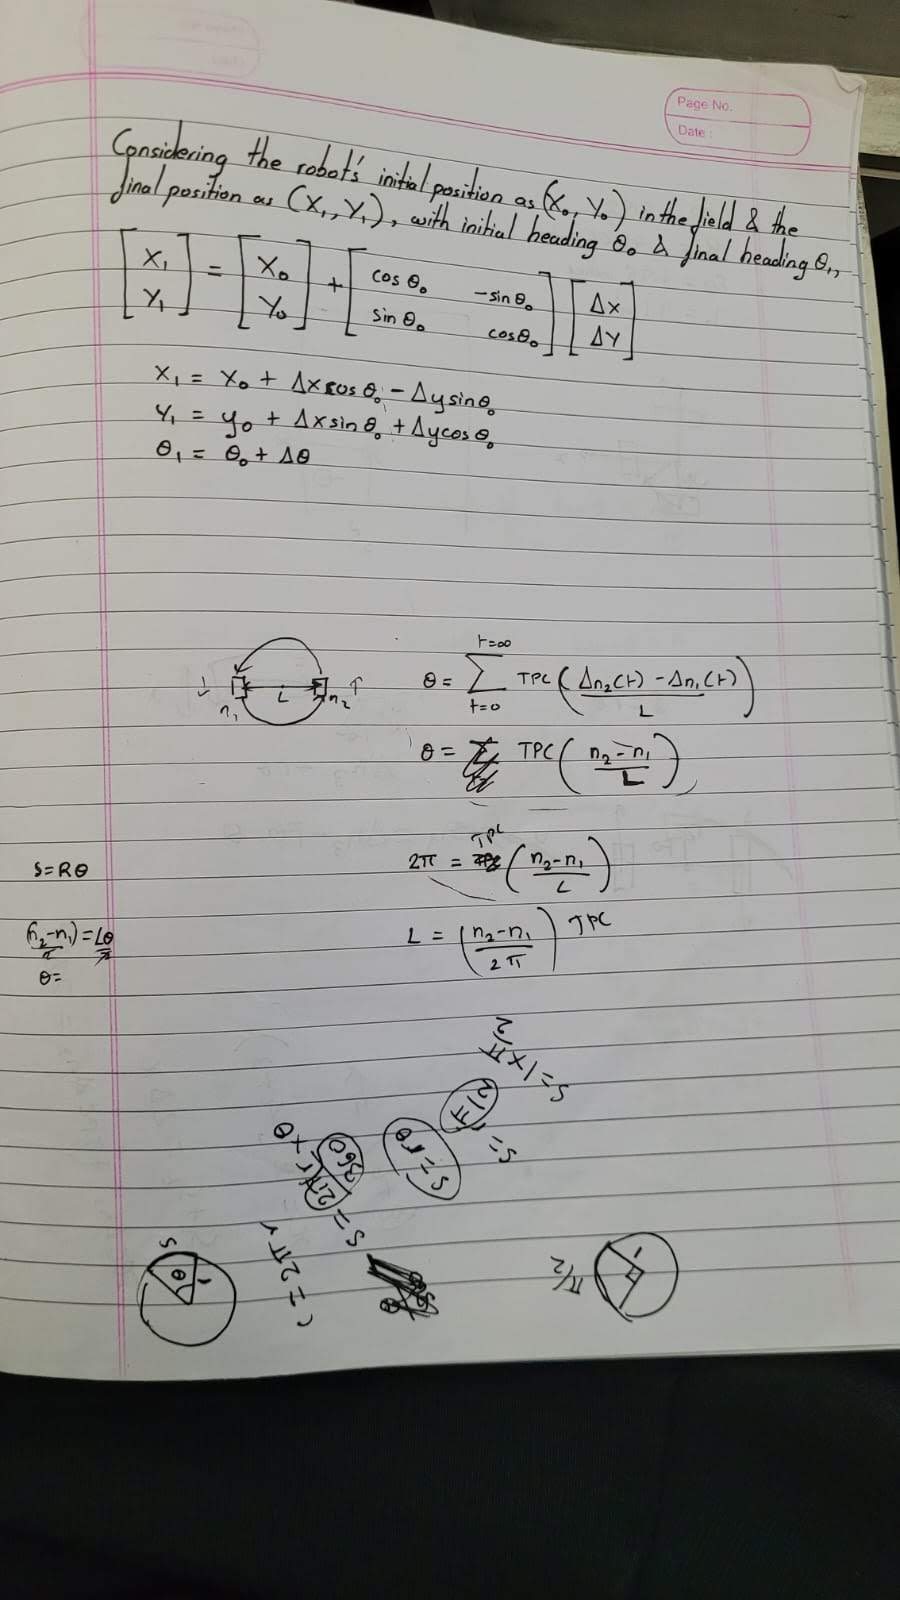 Page No.
Date :
Considering the robot's initial position as (X₀, Y₀) in the field & the
final position as (X₁, Y₁), with initial heading θ₀ & final heading θ₁,
[X₁ Y₁] = [X₀ Y₀] + [cos θ₀ -sin θ₀ sin θ₀ cos θ₀] [Δx ΔY]
X₁ = X₀ + Δx cos θ₀ - Δy sin θ₀
Y₁ = y₀ + Δx sin θ₀ + Δy cos θ₀
θ₁ = θ₀ + Δθ
n₁ L n₂
θ = Σ t=0 t=∞ TPC (Δn₂(t) - Δn₁(t) / L)
θ = TPC (n₂ - n₁ / L)
2π = TPC (n₂ - n₁ / L)
L = (n₂ - n₁ / 2π) TPC
S = Rθ
(n₂ - n₁) = Lθ
θ =
S = 1 × π/2
S = π/2
S = rθ
S = 2πr/360 × θ
C = 2πr
S
θ
π/2
1